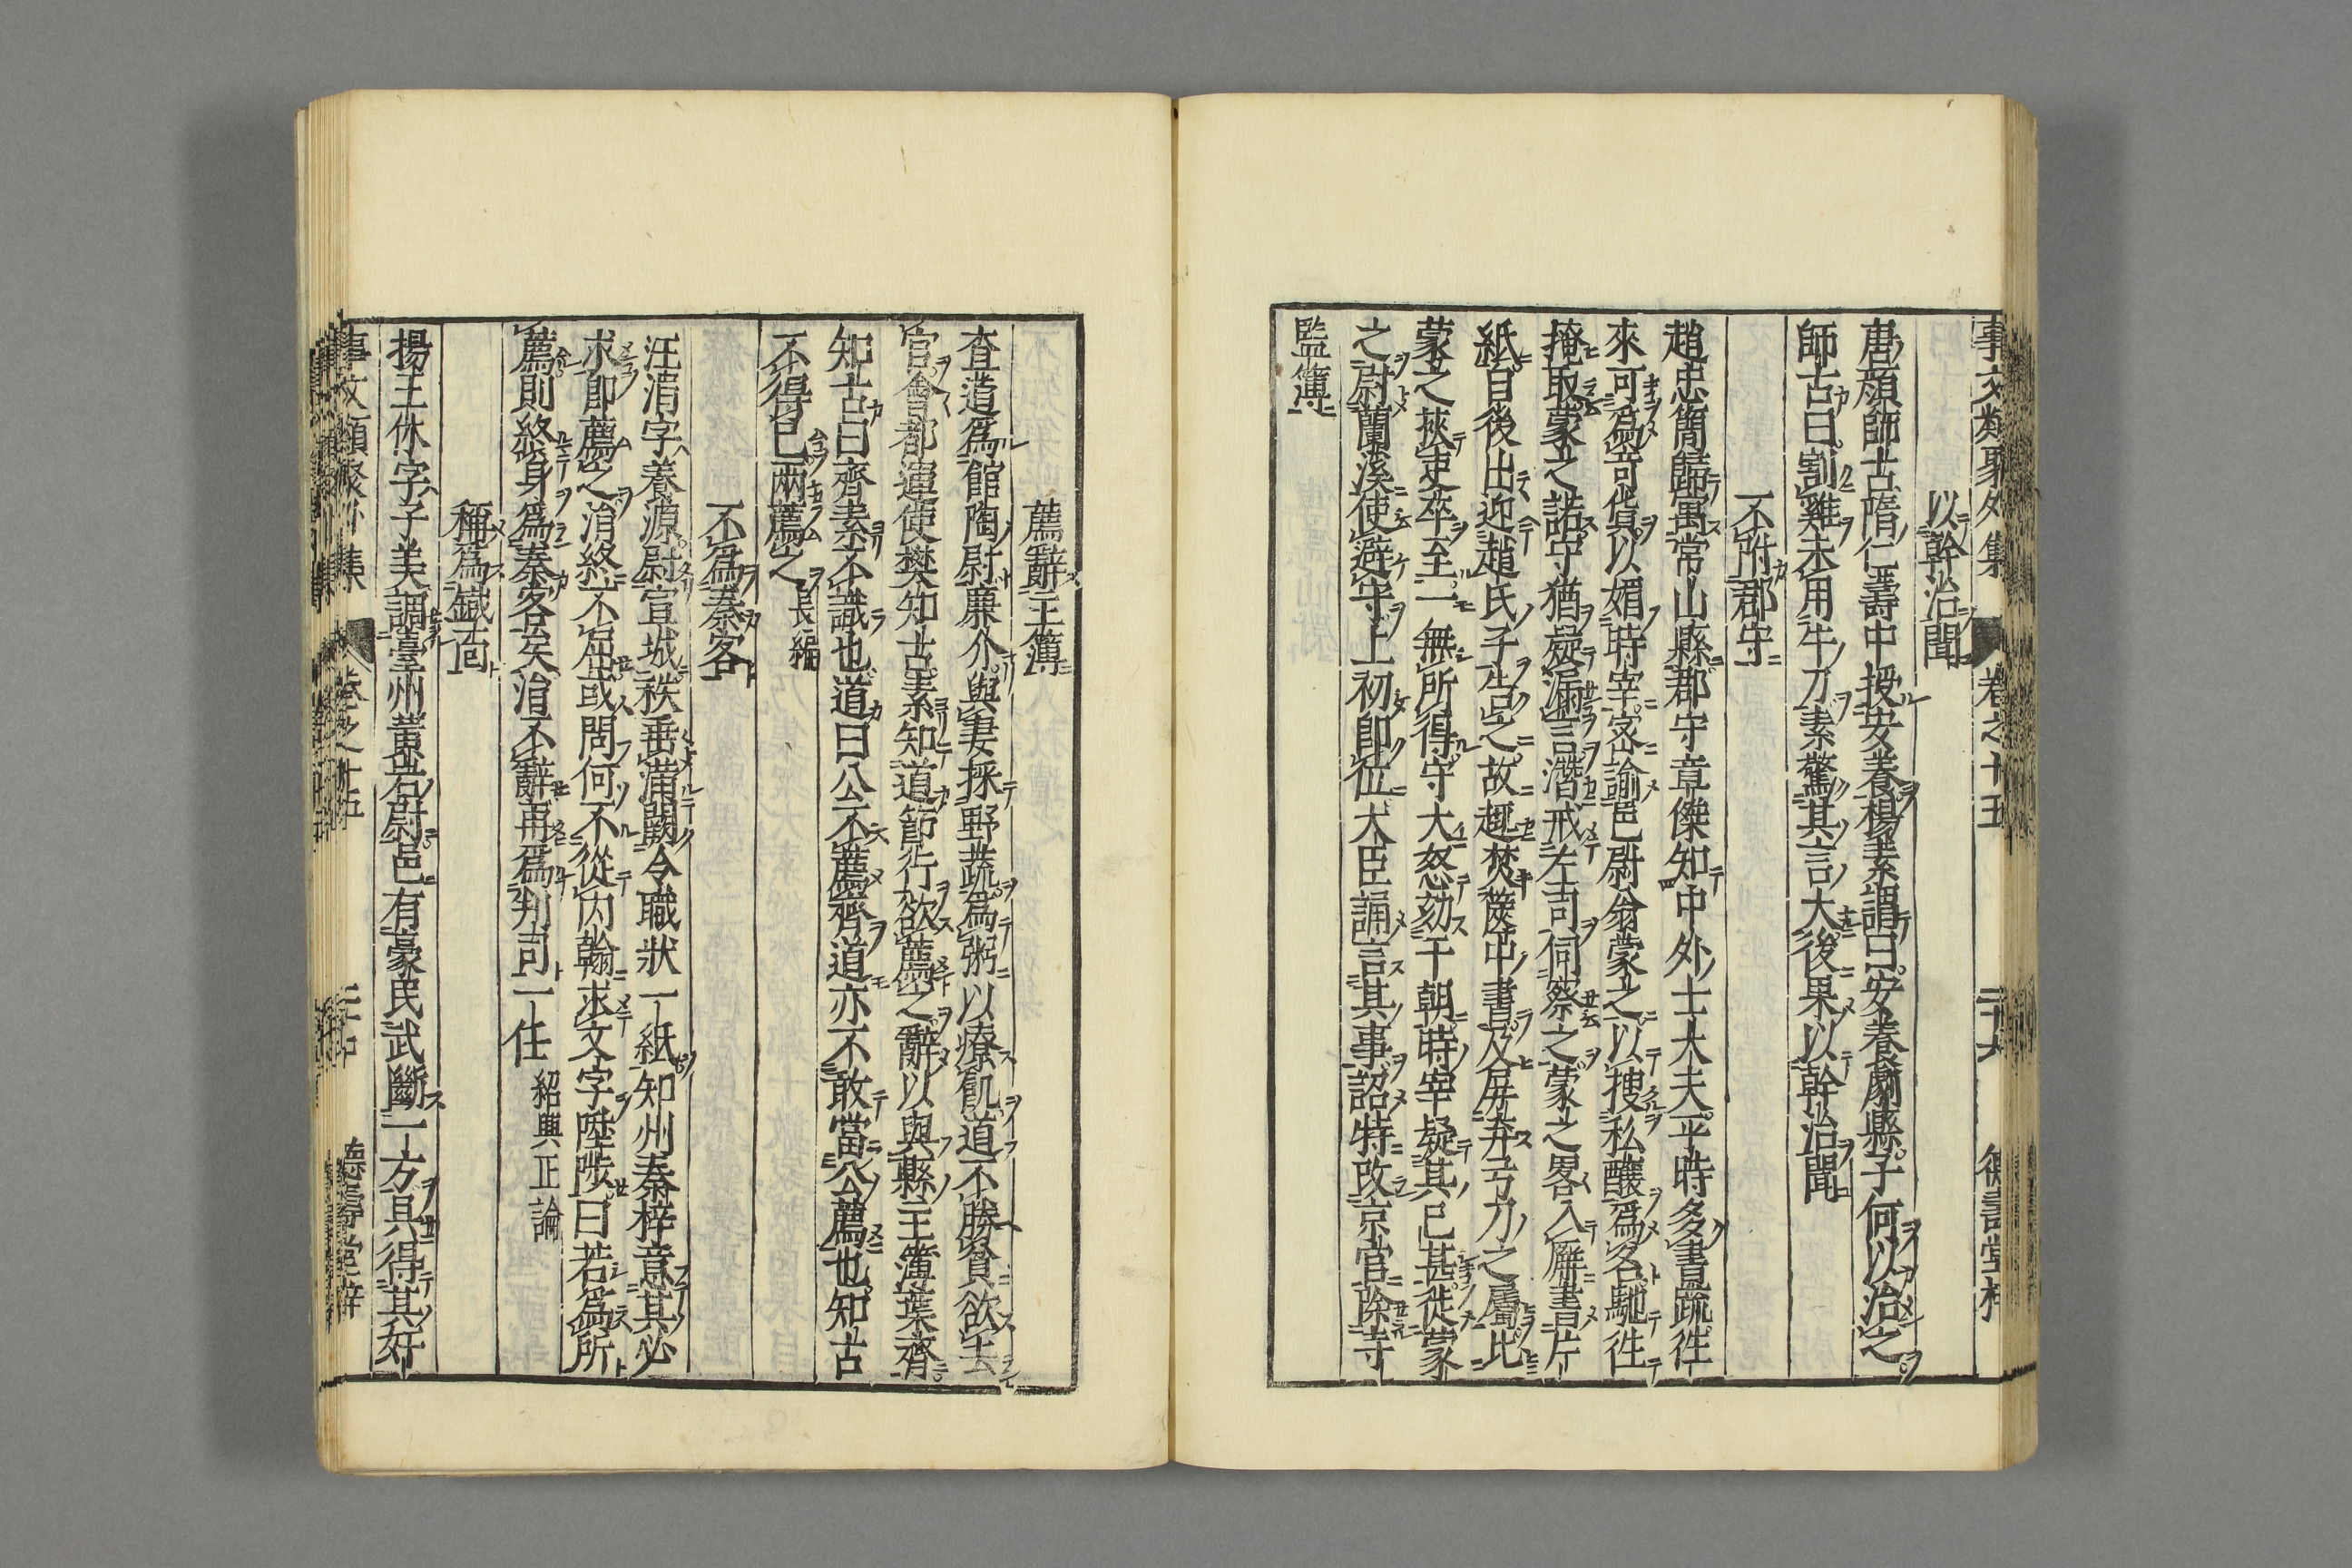 事文類聚外集 卷之十五 二十九 德壽堂梓
以幹治聞
唐顔師古隋仁壽中授安養楊素謂曰安養劇縣子何以治之
師古曰割雞未用牛刀素驚其言大後果以幹治聞
不附郡守
趙忠簡歸寓常山縣郡守章傑知中外士大夫平時多書疏徃
來可爲奇貨以媚時宰密諭邑尉翁蒙之以搜私釀爲名馳徃
掩取蒙之諾守猶疑漏言潛戒左司伺察之蒙之畧入廨書片
紙自後出迎趙氏子告之故趣焚篋中書及屏弃弓刀之屬比
蒙之挾吏卒至一無所得守大怒劾于朝時宰疑其已甚徙蒙
之尉蘭溪使避守上初卽位大臣誦言其事詔特改京官除寺
監簿
薦辭主簿
查道爲館陶尉廉介與妻採野蔬爲粥以療飢道不勝貧欲去
官會都運使樊知古素知道節行欲薦之辭以與縣主簿葉齊
知古曰齊素不識也道曰公不薦齊道亦不敢當公薦也知古
不得已兩薦之 長編
不爲秦客
汪涓字養源尉宣城秩垂滿闕令職狀一紙知州秦梓意其必
求卽薦之涓終不屈或問何不從内翰求文字陞陟曰若爲所
薦則終身爲秦客矣涓不辭再爲判司一任 紹興正論
稱爲鐵面
揚王休字子美調臺州黃岩尉邑有豪民武斷一方具得其奸
事文類聚外集 卷之十五 三十 德壽堂梓